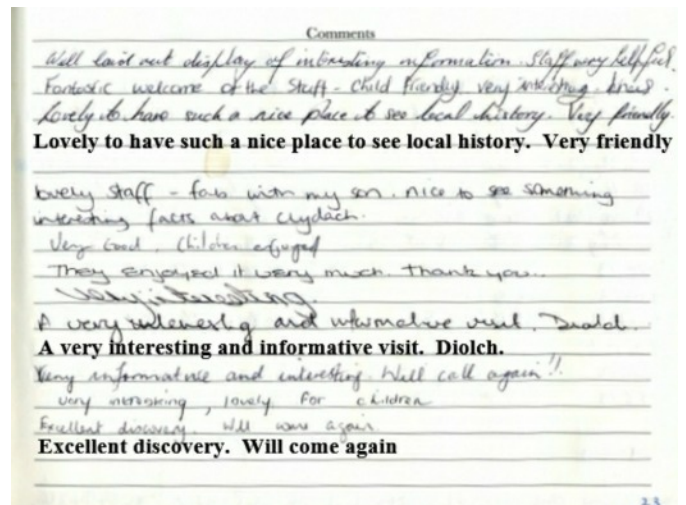 Comments
Well laid out display of interesting information. Staff very helpful.
Fantastic welcome of the Staff - Child friendly very interesting
Lovely to have such a nice place to see local history. Very friendly.
Lovely to have such a nice place to see local history. Very friendly
lovely staff - fab with my son. nice to see something
interesting facts about Clydach.
Very Good. Children enjoyed
They enjoyed it very much. Thank you...
Very interesting.
A very interesting and informative visit. Diolch.
A very interesting and informative visit. Diolch.
Very informative and interesting. Will call again!!
very interesting, lovely for children
Excellent discovery. Will come again.
Excellent discovery. Will come again
23